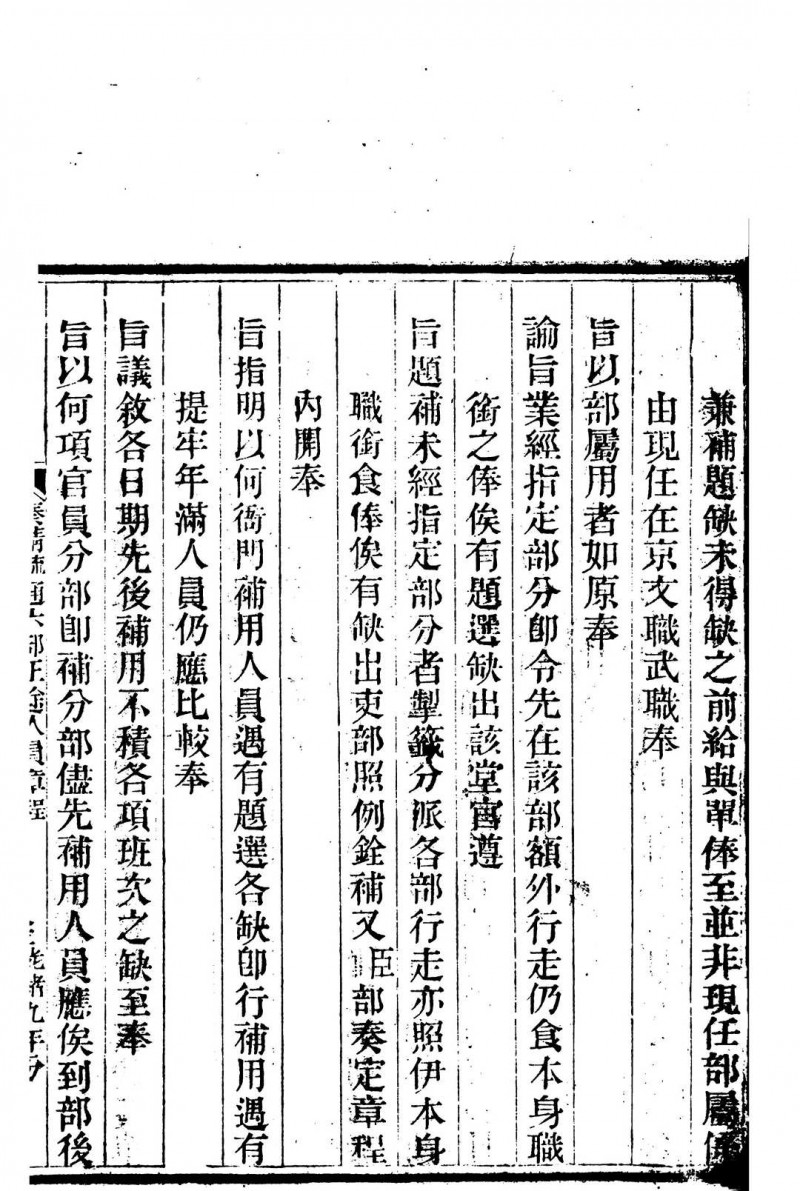 兼補題缺未得缺之前給與單俸至並非現任部屬係
由現任在京文職武職奉
旨以部屬用者如原奉
諭旨業經指定部分卽令先在該部額外行走仍食本身職
銜之俸俟有題選缺出該堂官遵
旨題補未經指定部分者掣籤分派各部行走亦照伊本身
職銜食俸俟有缺出吏部照例銓補又臣部奏定章程
內開奉
旨指明以何衙門補用人員遇有題選各缺卽行補用遇有
提牢年滿人員仍應比較奉
旨議敘各日期先後補用不積各項班次之缺至奉
旨以何項官員分部卽補分部儘先補用人員應俟到部後
奏請疏通六部正途人員章程
光緒九年分